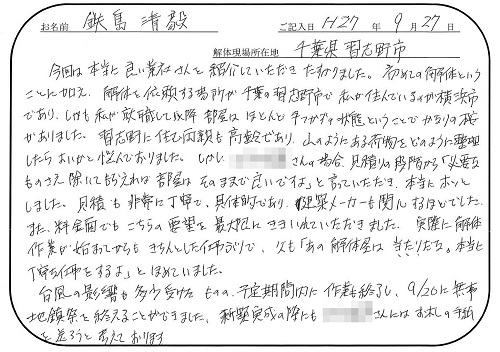 お名前 鉄島 清毅 ご記入日 H27 年 9 月 27 日
解体現場所在地 千葉県 習志野市
今回は本当に良い業者さんを紹介していただき たすかりました。初めての解体という
ことに加え、解体を依頼する場所が千葉の習志野市で私が住んでいるのが横浜市
であり、しかも私が就職して以降 部屋はほとんど手つかずの状態ということでかなりの
がありました。習志野に住む両親も高齢であり、山のようにある荷物をどのように整理
したらよいかと悩んでおりました。しかし さんの場合、見積りの段階から「必要な
ものさえ除いてもらえれば部屋は そのままで良いですよ」と言っていただき、本当にホッと
しました。見積も非常に丁寧で、具体的であり、建築メーカーも関心するほどでした。
また、料金面でもこちらの要望を最大限にきいていただきました。実際に解体
作業が始まってからもきちんとした仕事ぶりで、父も「あの解体屋は当たりだな。本当に
丁寧な仕事をするよ」とほめていました。
台風の影響も多少受けたものの、予定期間内に作業も終了し、9/20に無事
地鎮祭を終えることができました。新築完成の際にも さんにはお礼の手紙
を送ろうと考えております